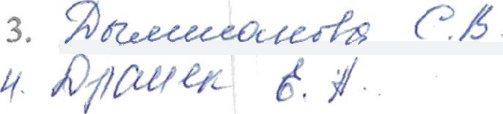 3. Дымшакова С.В.
4. Драчек Е.А.